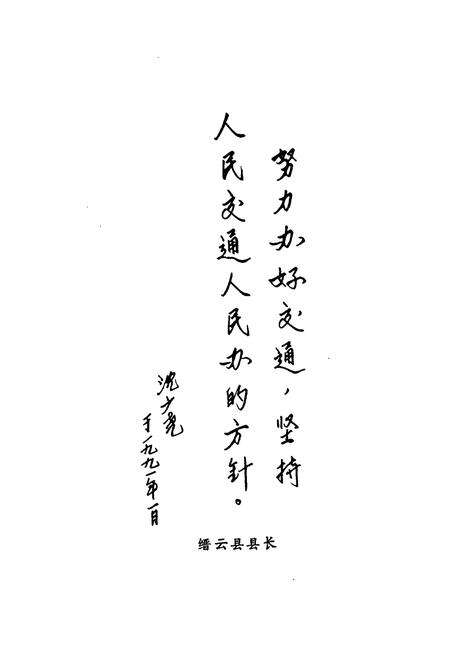 努力办好交通，坚持
人民交通人民办的方针。
沈少尧
于一九九一年一月
缙云县县长